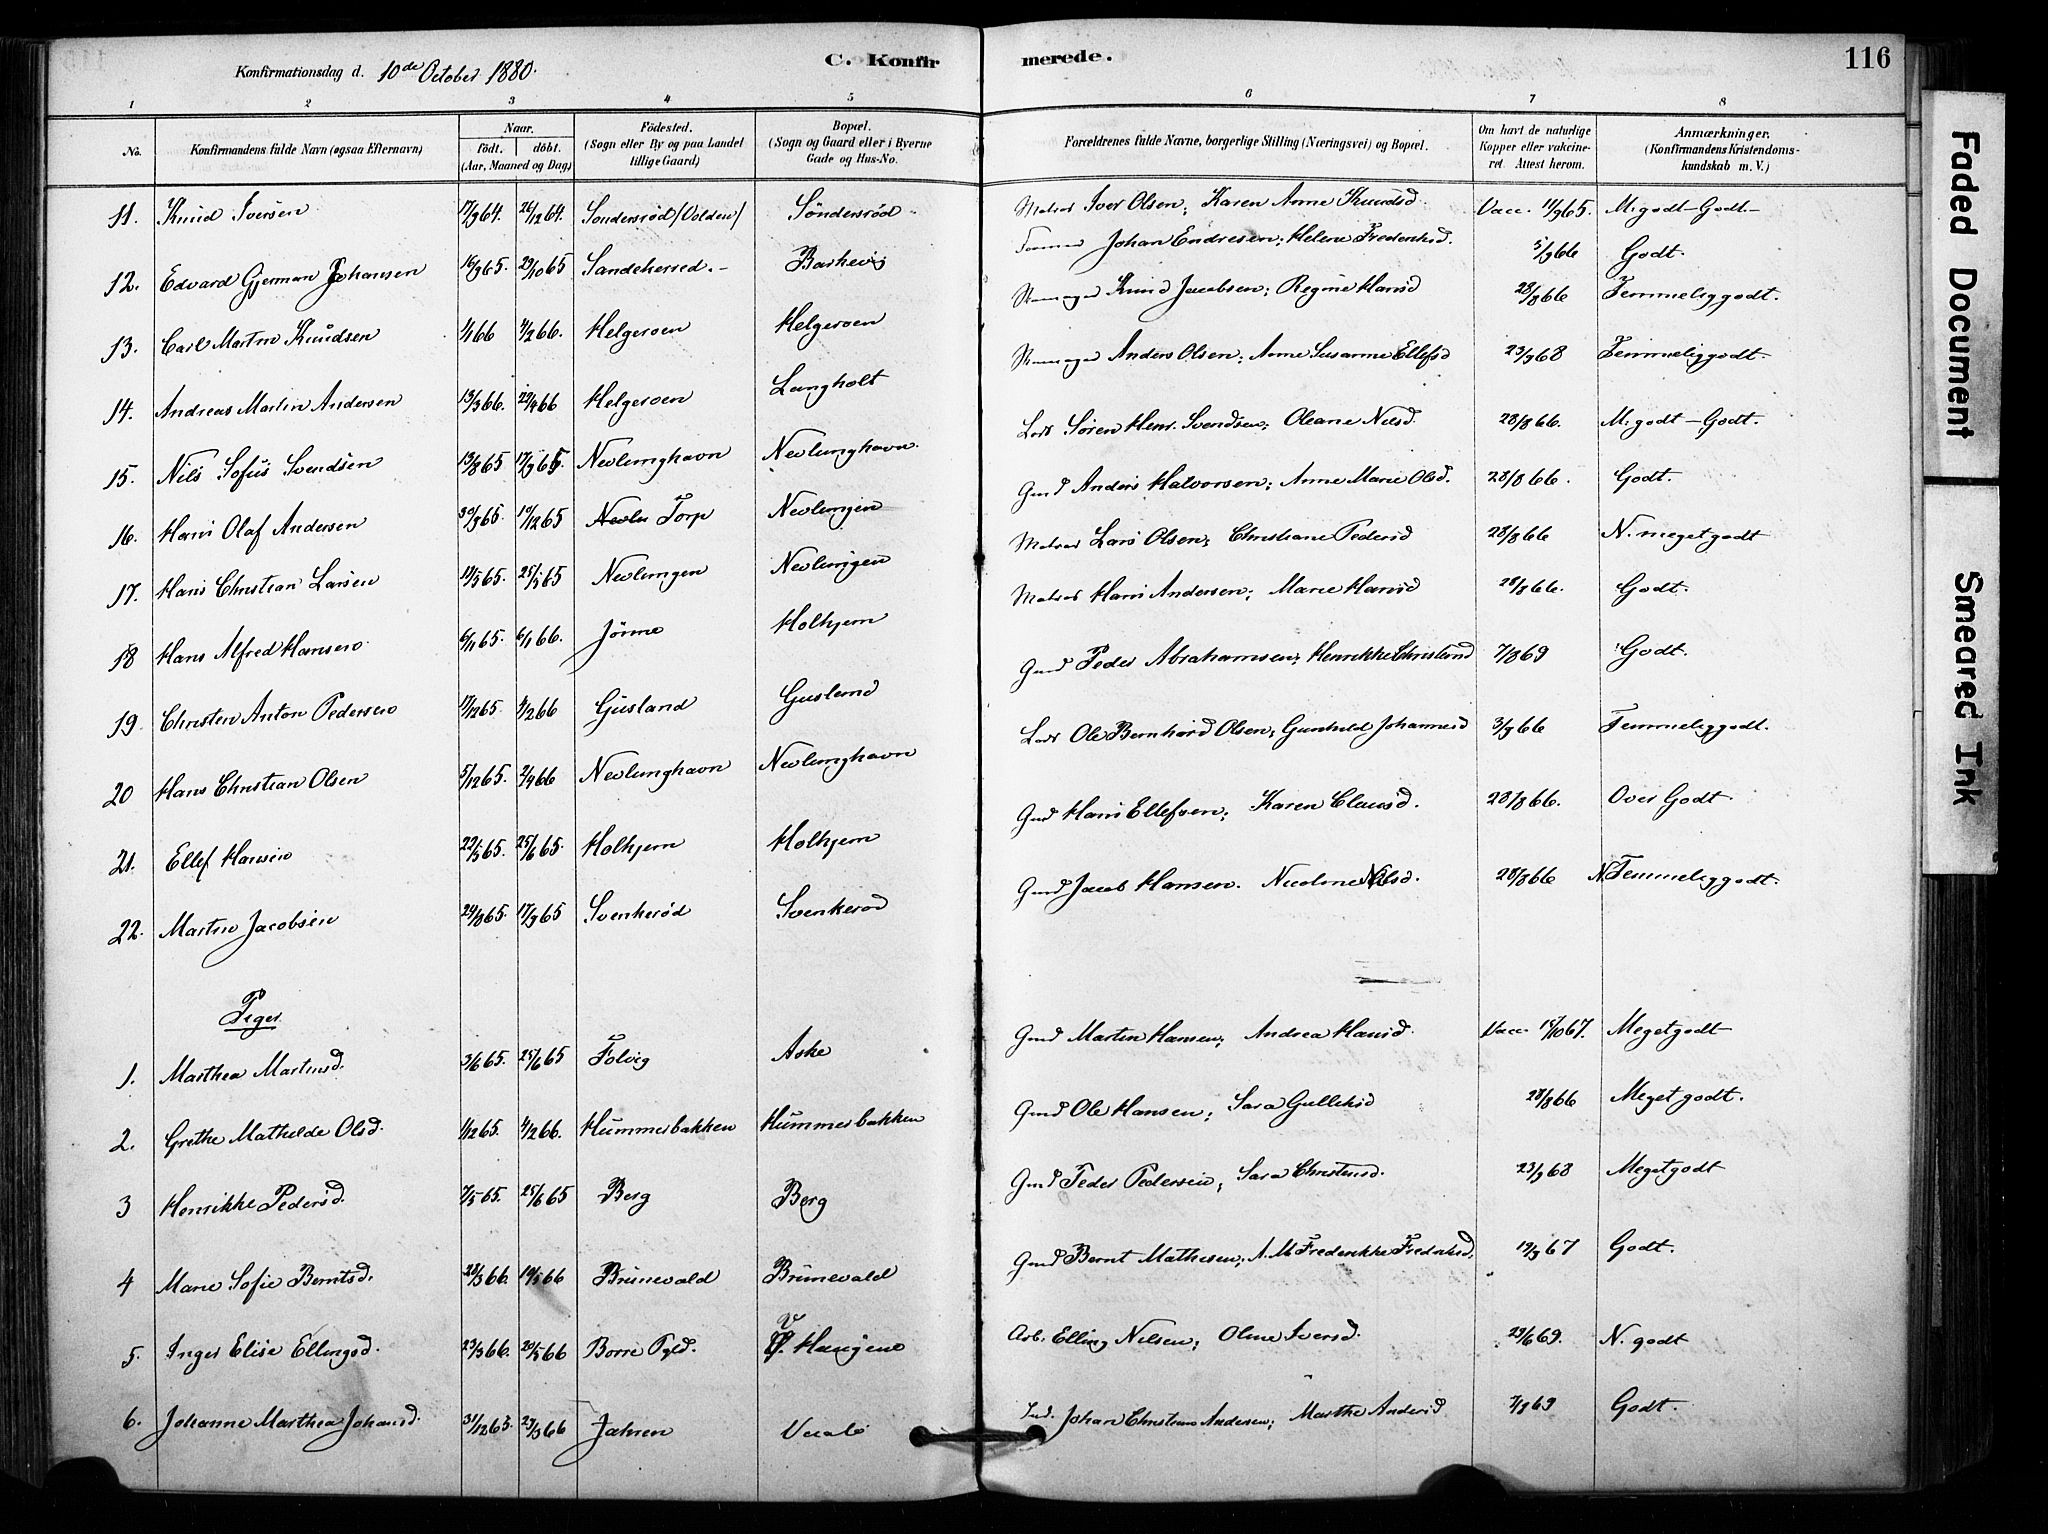 Konfirmationsdag d. 10de October 1880.
C. Konfirmerede.
116
1 2 3 4 5 6 7 8
No.
Konfirmandens fulde Navn (ogsaa Efternavn)
Naar.
født. døbt.
(Aar, Maaned og Dag)
Fødested.
(Sogn eller By og paa Landet
tillige Gaard)
Bopæl.
(Sogn og Gaard eller i Byerne
Gade og Hus-No.
Forældrenes fulde Navne, borgerlige Stilling (Næringsvei) og Bopæl.
Om havt de naturlige
Kopper eller vakcine-
ret. Attest herom.
Anmærkninger.
(Konfirmandens Kristendoms-
kundskab m. V.)
11. Knud Iversen 17/9 64. 26/12 64. Søndersrød /Volden/ Søndersrød Matros Iver Olsen; Karen Anne Knudsd. Vacc. 11/9 65. M. godt - Godt.
12. Edvard Gjerman Johansen 16/9 65. 29/10 65 Sandeherred. Barkevig Johan Endresen; Helene Frederiksd. 5/9 66 Godt.
13. Carl Martin Knudsen 1/1 66 4/2 66. Helgeroen Helgeroen Knud Jacobsen; Regine Hansd 28/8 66 Temmelig godt.
14. Andreas Martin Andersen 13/3 66. 29/4 66 Helgeroen Langholt Anders Olsen; Anne Susanne Ellefsd 23/9 68 Temmelig godt.
15. Nils Sofus Svendsen 13/8 65 17/9 65. Nevlunghavn Nevlunghavn. Lods Søren Henr. Svendsen; Oleane Nilsd. 28/8 66. M. godt - Godt.
16. Hans Olaf Andersen 30/9 65. 10/12 65 Torp Nevlungen Gmd Anders Halvorsen; Anne Marie Olsd. 28/8 66. Godt.
17. Hans Christian Larsen 11/5 65. 25/5 65 Nevlungen Nevlungen Matros Lars Olsen; Christiane Pedersd 28/8 66 N. meget godt
18 Hans Alfred Hansen 6/11 65. 6/1 66. Jønne Holhjem Matros Hans Andersen; Marie Hansd 28/8 66. Godt.
19. Christen Anton Pedersen 17/12 65. 4/2 66 Gusland Gusland Gmd Peder Abrahamsen; Henrikke Christensd 7/8 69 Godt.
20 Hans Christian Olsen 5/12 65. 2/4 66 Nevlunghavn Nevlunghavn Lods Ole Bernhard Olsen; Gunhild Johannesd 3/9 66 Temmelig godt.
21. Ellef Hansen 22/5 65. 25/6 65. Holhjem Holhjem Gmd Hans Ellefsen; Karen Clausd. 28/8 66. Over Godt
22. Martin Jacobsen 24/8 65. 17/9 65 Svenkerød Svenkerød Gmd Jacob Hansen. Nicoline Nilsd. 28/8 66 N. Temmelig godt.
Piger
1. Marthea Martinsd. 3/6 65. 25/6 65 Folvig Aske Gmd Martin Hansen; Andrea Hansd. Vacc 18/10 67. Meget godt
2. Grethe Mathilde Olsd. 1/12 65. 4/2 66. Hummerbakken Hummerbakken Gmd Ole Hansen; Sara Gulliksd 28/8 66 Meget godt.
3 Henrikke Pedersd. 7/5 65. 25/6 65 Berg Berg Gmd Peder Pedersen; Sara Christensd. 23/9 68 Meget godt
4 Marie Sofie Berntsd. 21/3 66. 10/5 66 Brunevald Brunevald Gmd Bernt Mathisen; A. M. Frederikke Frederiksd. 19/9 67 Godt.
5. Inger Elise Ellingsd. 23/3 66. 20/5 66 Borre Pgld. V. Haugene Arb. Elling Nilsen; Oline Iversd. 29/6 69. N. godt
6. Johanne Marthea Johansd. 31/12 65. 27/3 66 Jahren Johan Christian Andersen; Marthe Andersd 7/8 69 Godt.
Faded Document
Smeared Ink